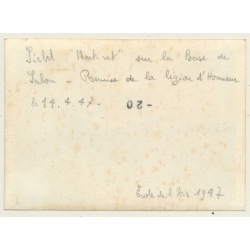 Pichet "Mont vit" sur la Base de
Salon - Remise de la légion d'Honneur
le 14.4.47. - 20
École de l'Air 1947